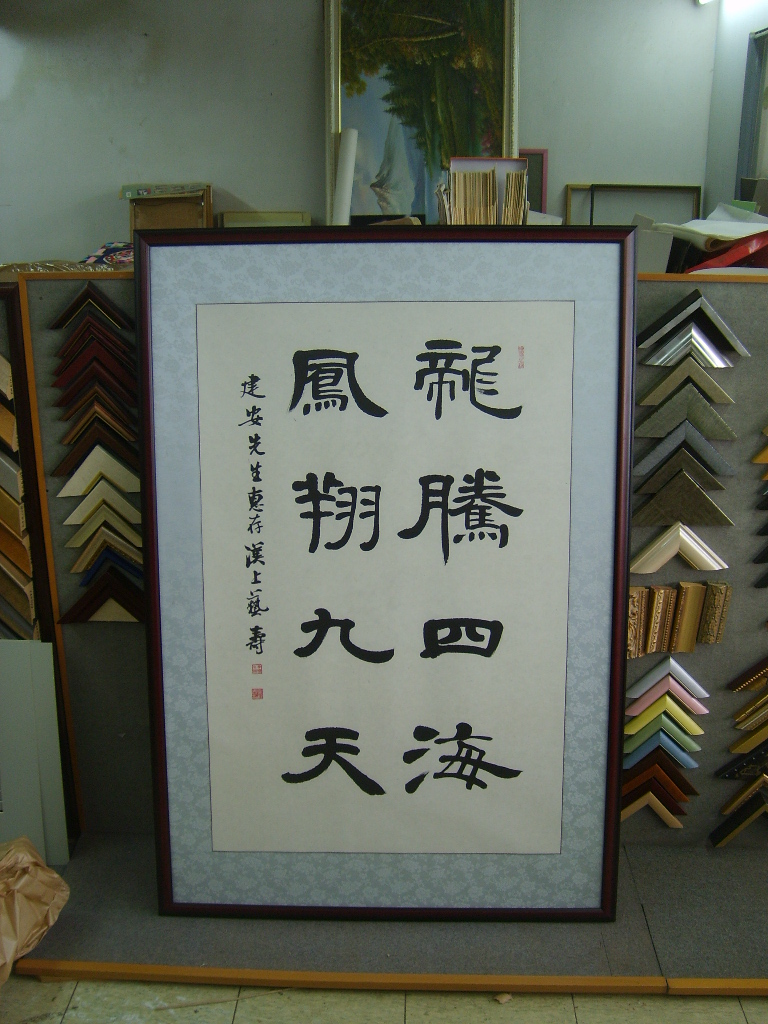 龍騰四海
鳳翔九天
建安先生惠存漢上藝壽